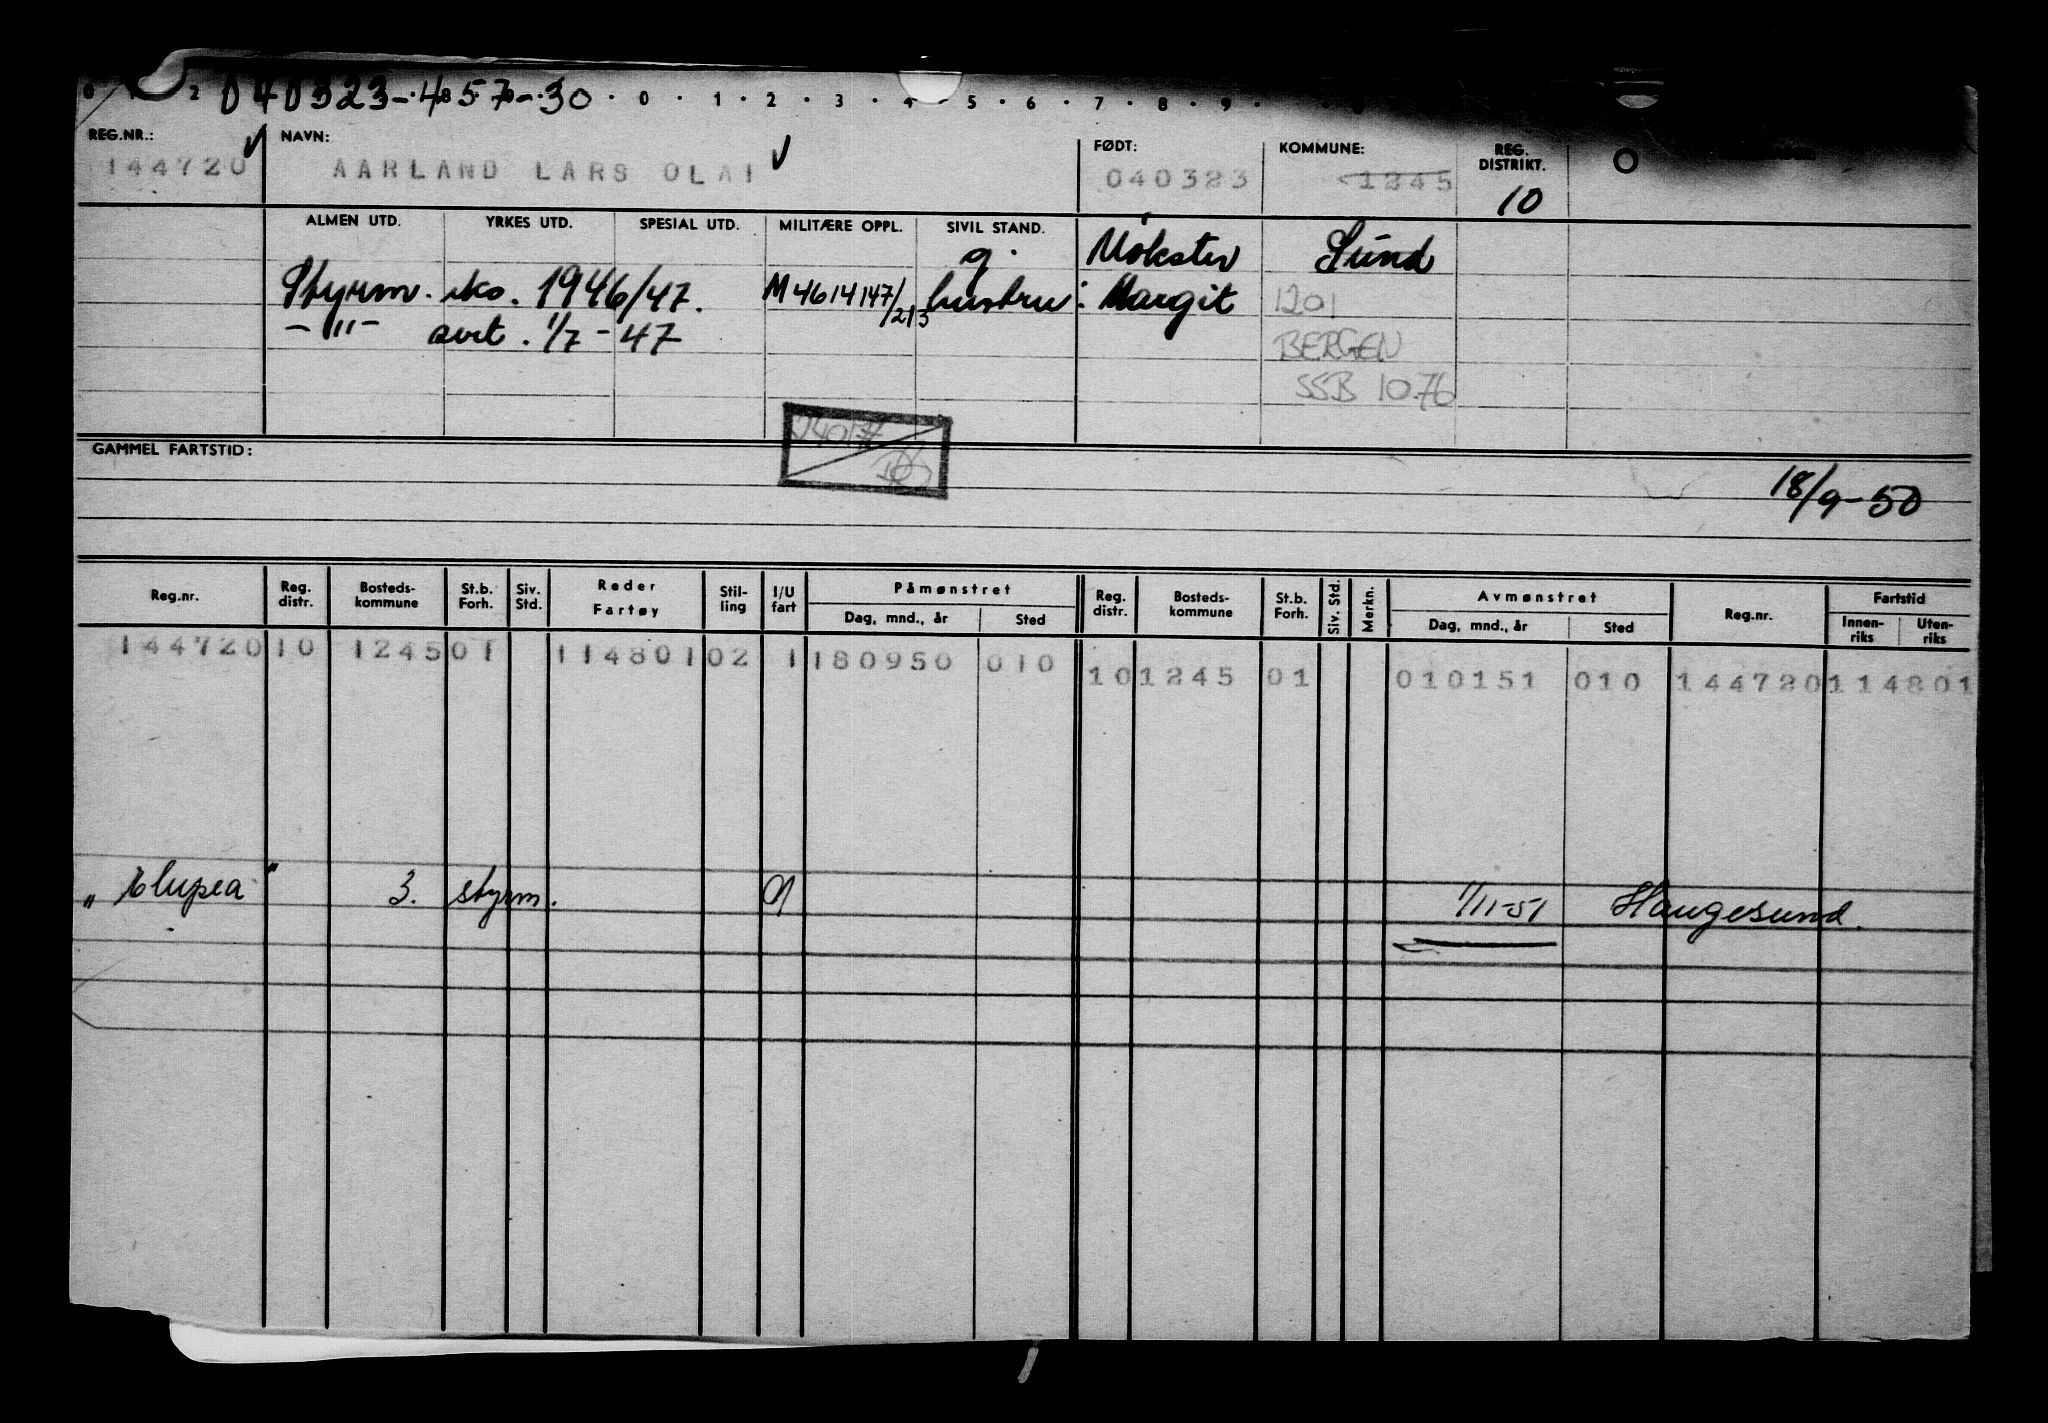 040323-457-30
0 1 2 0 1 2 3 4 5 6 7 8 9
REG.NR.: NAVN: FØDT: KOMMUNE: REG. DISTRIKT.
144720 AARLAND LARS OLAI 040323 1245 10
ALMEN UTD. YRKES UTD. SPESIAL UTD. MILITÆRE OPPL. SIVIL STAND.
g. Møkster Sund
Styrm. sko. 1946/47. M4614147/213 hustru: Margit 1201
-"- avt. 1/7-47 BERGEN
SSB 10.76
GAMMEL FARTSTID:
18/9-50
Reg.nr. Reg. distr. Bosteds-kommune St.b. Forh. Siv. Std. Reder Fartøy Stil-ling I/U fart Påmønstret Dag, mnd., år Sted Reg. distr. Bosteds-kommune St.b. Forh. Siv. Std. Merkn. Avmønstret Dag, mnd., år Sted Reg.nr. Fartstid Innen-riks Uten-riks
144720 10 1245 01 114801 02 1 180950 010 10 1245 01 010151 010 144720 114801
"Clupea" 3. styrm. 1/11-51 Haugesund.